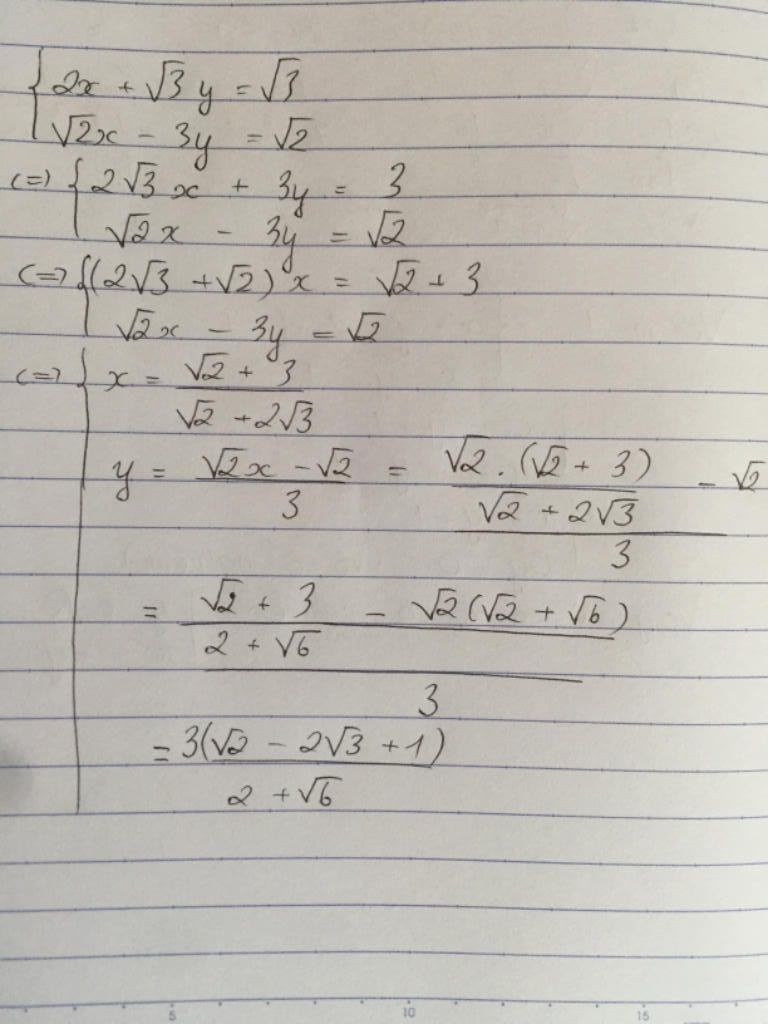 { 2x + √3 y = √3
√2x - 3y = √2
<=> { 2√3 x + 3y = 3
√2 x - 3y = √2
<=> { (2√3 + √2) x = √2 + 3
√2x - 3y = √2
<=> { x = (√2 + 3) / (√2 + 2√3)
y = (√2x - √2) / 3 = (√2 . (√2 + 3) / (√2 + 2√3) - √2) / 3
= ((√2 + 3 - √2(√2 + √6)) / (2 + √6)) / 3
= 3(√2 - 2√3 + 1) / (2 + √6)
5 10 15